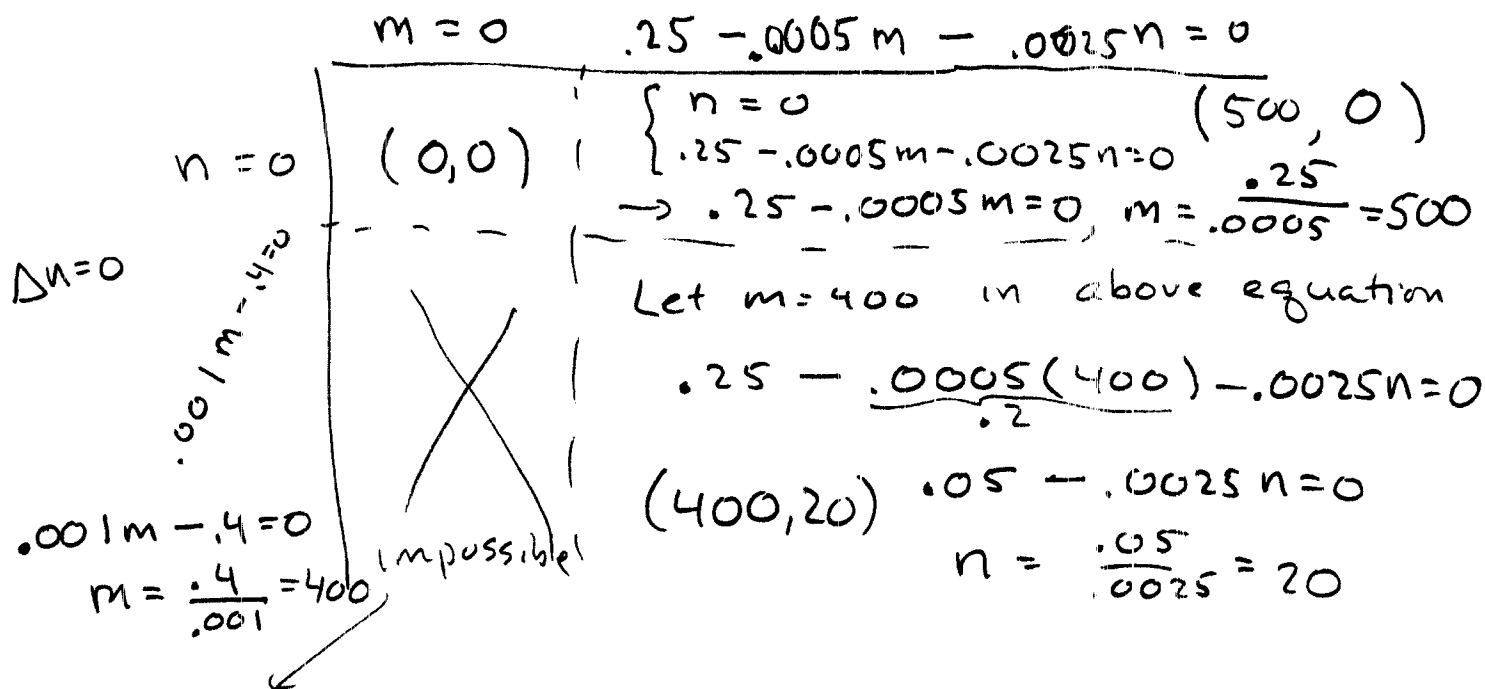 m = 0    .25 - .0005 m - .0025 n = 0
n = 0    (0,0)    { n = 0    (500, 0)
.25 - .0005m - .0025n = 0
→ .25 - .0005 m = 0, m = .25/.0005 = 500
Δn=0
.001m - .4=0
Let m = 400 in above equation
.25 - .0005(400) - .0025n = 0
.2
(400,20)    .05 - .0025 n = 0
n = .05/.0025 = 20
.001m - .4 = 0
m = .4/.001 = 400
impossible!